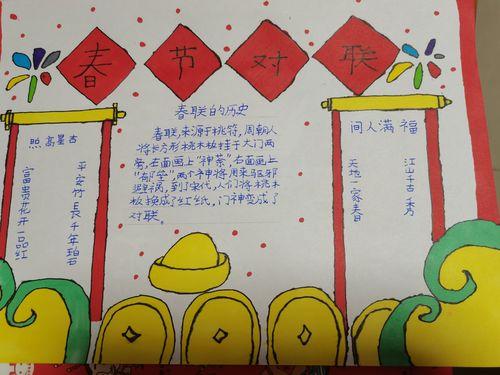 春节对联
照高星吉
平安竹長千年碧
富贵花开一品红
春联的历史
春联,来源于桃符,周朝人
将长方形桃木板挂于大门两
旁,右面画上"神荼"右面画上
"郁垒",两个神将用来驱邪
避祸,到了宋代,人们将桃木
板换成了红纸,门神变成了
对联。
间人满福
江山千古秀
天地一家春